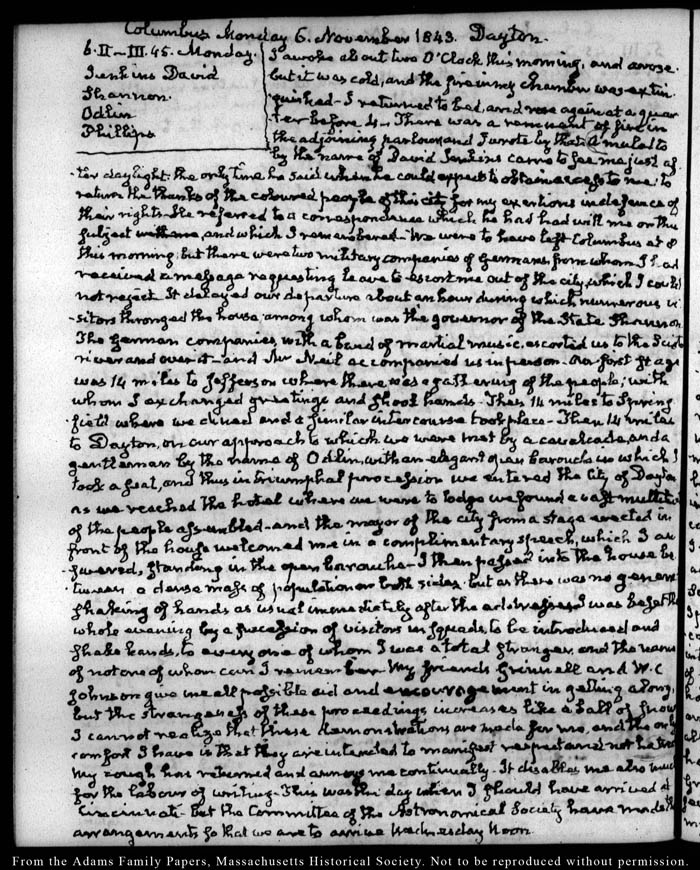 Columbus Monday 6. November 1843. Dayton.
6. II–III.45. Monday.
Jenkins David
Shannon.
Odlin
Phillips
I awoke about two O'Clock this morning, and arose.
but it was cold, and the fire in my chamber was extin
guished. I returned to bed, and rose again at a quar
ter before 4. There was a remnant of fire in
the adjoining parlour and I wrote by that. A mulatto
by the name of David Jenkins came to see me just af.
-ter daylight. the only time he said when he could expect to obtain access to me: to
return the thanks of the coloured people of this city for my exertions in defence of
their rights. He referred to a correspondence which he had had with me on this
subject and which I remembered. We were to have left Columbus at 8
this morning; but there were two military companies of Germans from whom I had
received a message requesting leave to escort me out of the city, which I could
not reject. It delayed our departure about an hour during which numerous vi
-sitors thronged the house, among whom was the governor of the State Shannon.
The German companies, with a band of martial music, escorted us to the Scioto
river and over it and Mr Neil accompanied us in person. Our first stage
was 14 miles to Jefferson where there was a gathering of the people; with
whom I exchanged greetings and shook hands. Then 14 miles to Spring
-field where we dined and a similar intercourse took place. Then 14 miles
to Dayton, on our approach to which we were met by a cavalcade, and a
gentleman by the name of Odlin, with an elegant open barouche in which I
took a seat, and thus in triumphal procession we entered the City of Dayton
as we reached the hotel where we were to lodge we found a vast multitu
of the people assembled and the mayor of the city from a stage erected in
front of the house welcomed me in a complimentary speech, which I an
swered, standing in the open barouche. I then passed into the house be
-tween a dense mass of population on both sides. but as there was no general
shaking of hands as usual immediately after the addresses, I was beset the
whole evening by a succession of visitors in squads, to be introduced and
shake hands, to every one of whom I was a total stranger, and the name
of not one of whom can I remember. My friends Grinnell and W. C
Johnson give me all possible aid and encouragement in getting along;
but the strangeness of these proceedings increases like a ball of snow
I cannot realize that these demonstrations are made for me, and the only
comfort I have is that they are intended to manifest respect and not hatred
My cough has returned and annoys me continually. It disables me also much
for the labour of writing. This was the day when I should have arrived at
Cincinnati. but the Committee of the Astronomical Society have made
arrangements so that we are to arrive Wednesday Noon.
From the Adams Family Papers, Massachusetts Historical Society. Not to be reproduced without permission.